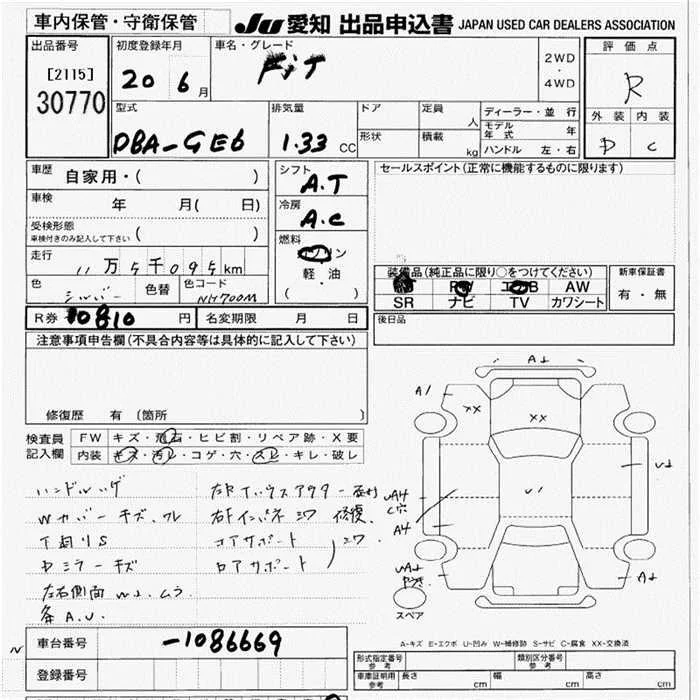 車内保管・守衛保管
JU 愛知 出品申込書 JAPAN USED CAR DEALERS ASSOCIATION
出品番号
[2115]
30770
初度登録年月
20 6月
車名・グレード
FiT
2WD
・
4WD
評価点
R
外装 内装
D C
型式
DBA-GE6
排気量
1.33 CC
ドア
形状
定員
人
積載
kg
ディーラー・並行
モデル年式 年
ハンドル 左・右
車歴 自家用・( )
車検 年 月( 日)
受検形態
車検付きのみ記入して下さい ( )
走行
11万5千095km
色
シルバー
色替
色コード
NH700M
シフト
A.T
冷房
A.C
燃料
ガソリン
軽・油
( )
セールスポイント(正常に機能するものに限ります)
装備品(純正品に限り○をつけてください)
PW エアB AW
SR ナビ TV カワシート
新車保証書
有・無
後日品
R券 10810 円
名変期限 月 日
注意事項申告欄(不具合内容等は具体的に記入して下さい)
修復歴 有 〔箇所 〕
検査員
記入欄
FW キズ・飛石・ヒビ割・リペア跡・X要
内装 キズ・汚レ・コゲ・穴・スレ・キレ・破レ
ハンドルハゲ
Wカバーキズ、ワレ
下廻りS
Dミラーキズ
左右側面
A.U.
右Fインパネ 修復
コアサポート
ロアサポート
A1
XX
XX
U1
A4
スペア
A-キズ E-エクボ U-凹み W-補修跡 S-サビ C-腐食 XX-交換済
車台番号 -1086669
登録番号
形式指定番号
参考
類別区分番号
参考
車庫証明用
参考
長さ cm
幅 cm
高さ cm